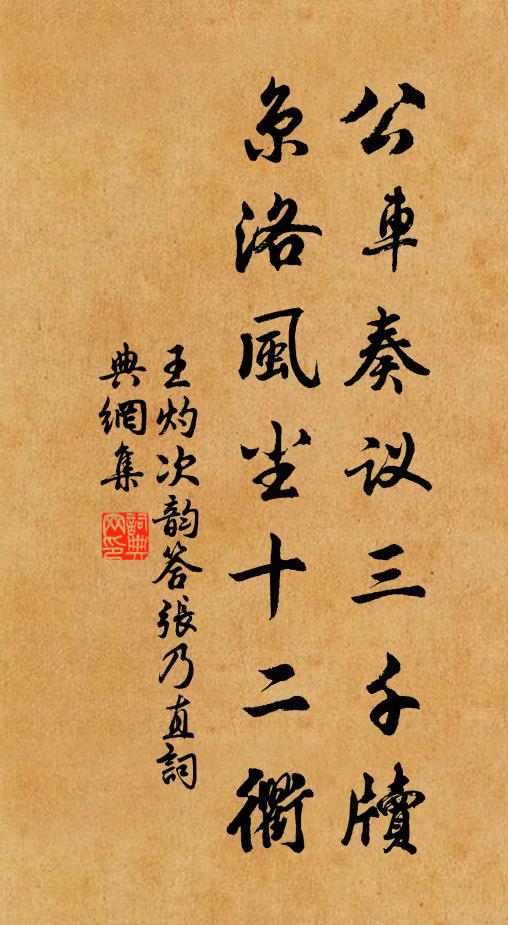 公車奏议三千牘
京洛風尘十二衢
王灼次韵答張乃直詞
典網集
詞典网印